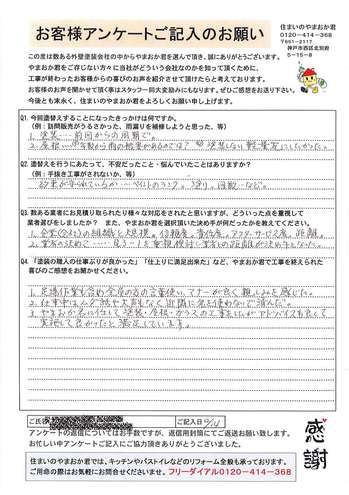 お客様アンケートご記入のお願い
住まいのやまおか君
0120-414-368
〒651-2117
神戸市西区北別府
5-15-8
この度は数ある外壁塗装会社の中からやまおか君を選んで頂き、誠にありがとうございます。
やまおか君をご存じない方々に当社がどういう会社なのかを知って頂くために、
工事が終わったお客様からの喜びのお声を紹介させて頂けたらと考えております。
お客様のお声を聞かせて頂く事はスタッフ一同大変励みにもなります。ぜひご感想をお送り下さい。
今後とも末永く、住まいのやまおか君をよろしくお願い申し上げます。
Q1. 今回塗替えすることになったきっかけは何ですか。
(例:訪問販売がうるさかった、雨漏りを補修しようと思った、等)
1. 塗装…前回からの周期で。
Q2. 塗替えを行うにあたって、不安だったこと・悩んでいたことはありますか?
(例:手抜き工事がされないか、等)
約束が守られているか…ペイントのランク。塗り。回数…など。
Q3. 数ある業者にお見積り取られたり様々な対応をされたと思いますが、どういった点を重視して
業者選びをしましたか? また、やまおか君を選択頂いた決め手が何だったかを教えてください。
1. 企業(会社)の組織と人員規模。信頼度。責任度。アフターサービス度。距離。
Q4. 「塗装の職人の仕事ぶりが良かった」「仕上りに満足出来た」など、やまおか君で工事を終えられた
喜びのご感想をお聞かせください。
1. 足場作業も含め全員の方の言葉使い、マナーが良く親しみを感じた。
2. 仕事中はムダ話や大声もなく近隣に気を使わないで済んだ。
3. やまおか君に任して塗装・屋根・ガラスの工事をしたがアドバイスも良くて
実施して良かったと満足しています。
ご氏名
ご記入日
アンケートの返信についてはお手数ですが、返信用封筒にてご返送お願い致します。
お忙しい中アンケートご記入にご協力頂きありがとうございました。
感謝
住まいのやまおか君では、キッチンやバストイレなどのリフォーム全般も承っております。
ご用命の際はお気軽にお問合せくださいませ。フリーダイアル0120-414-368